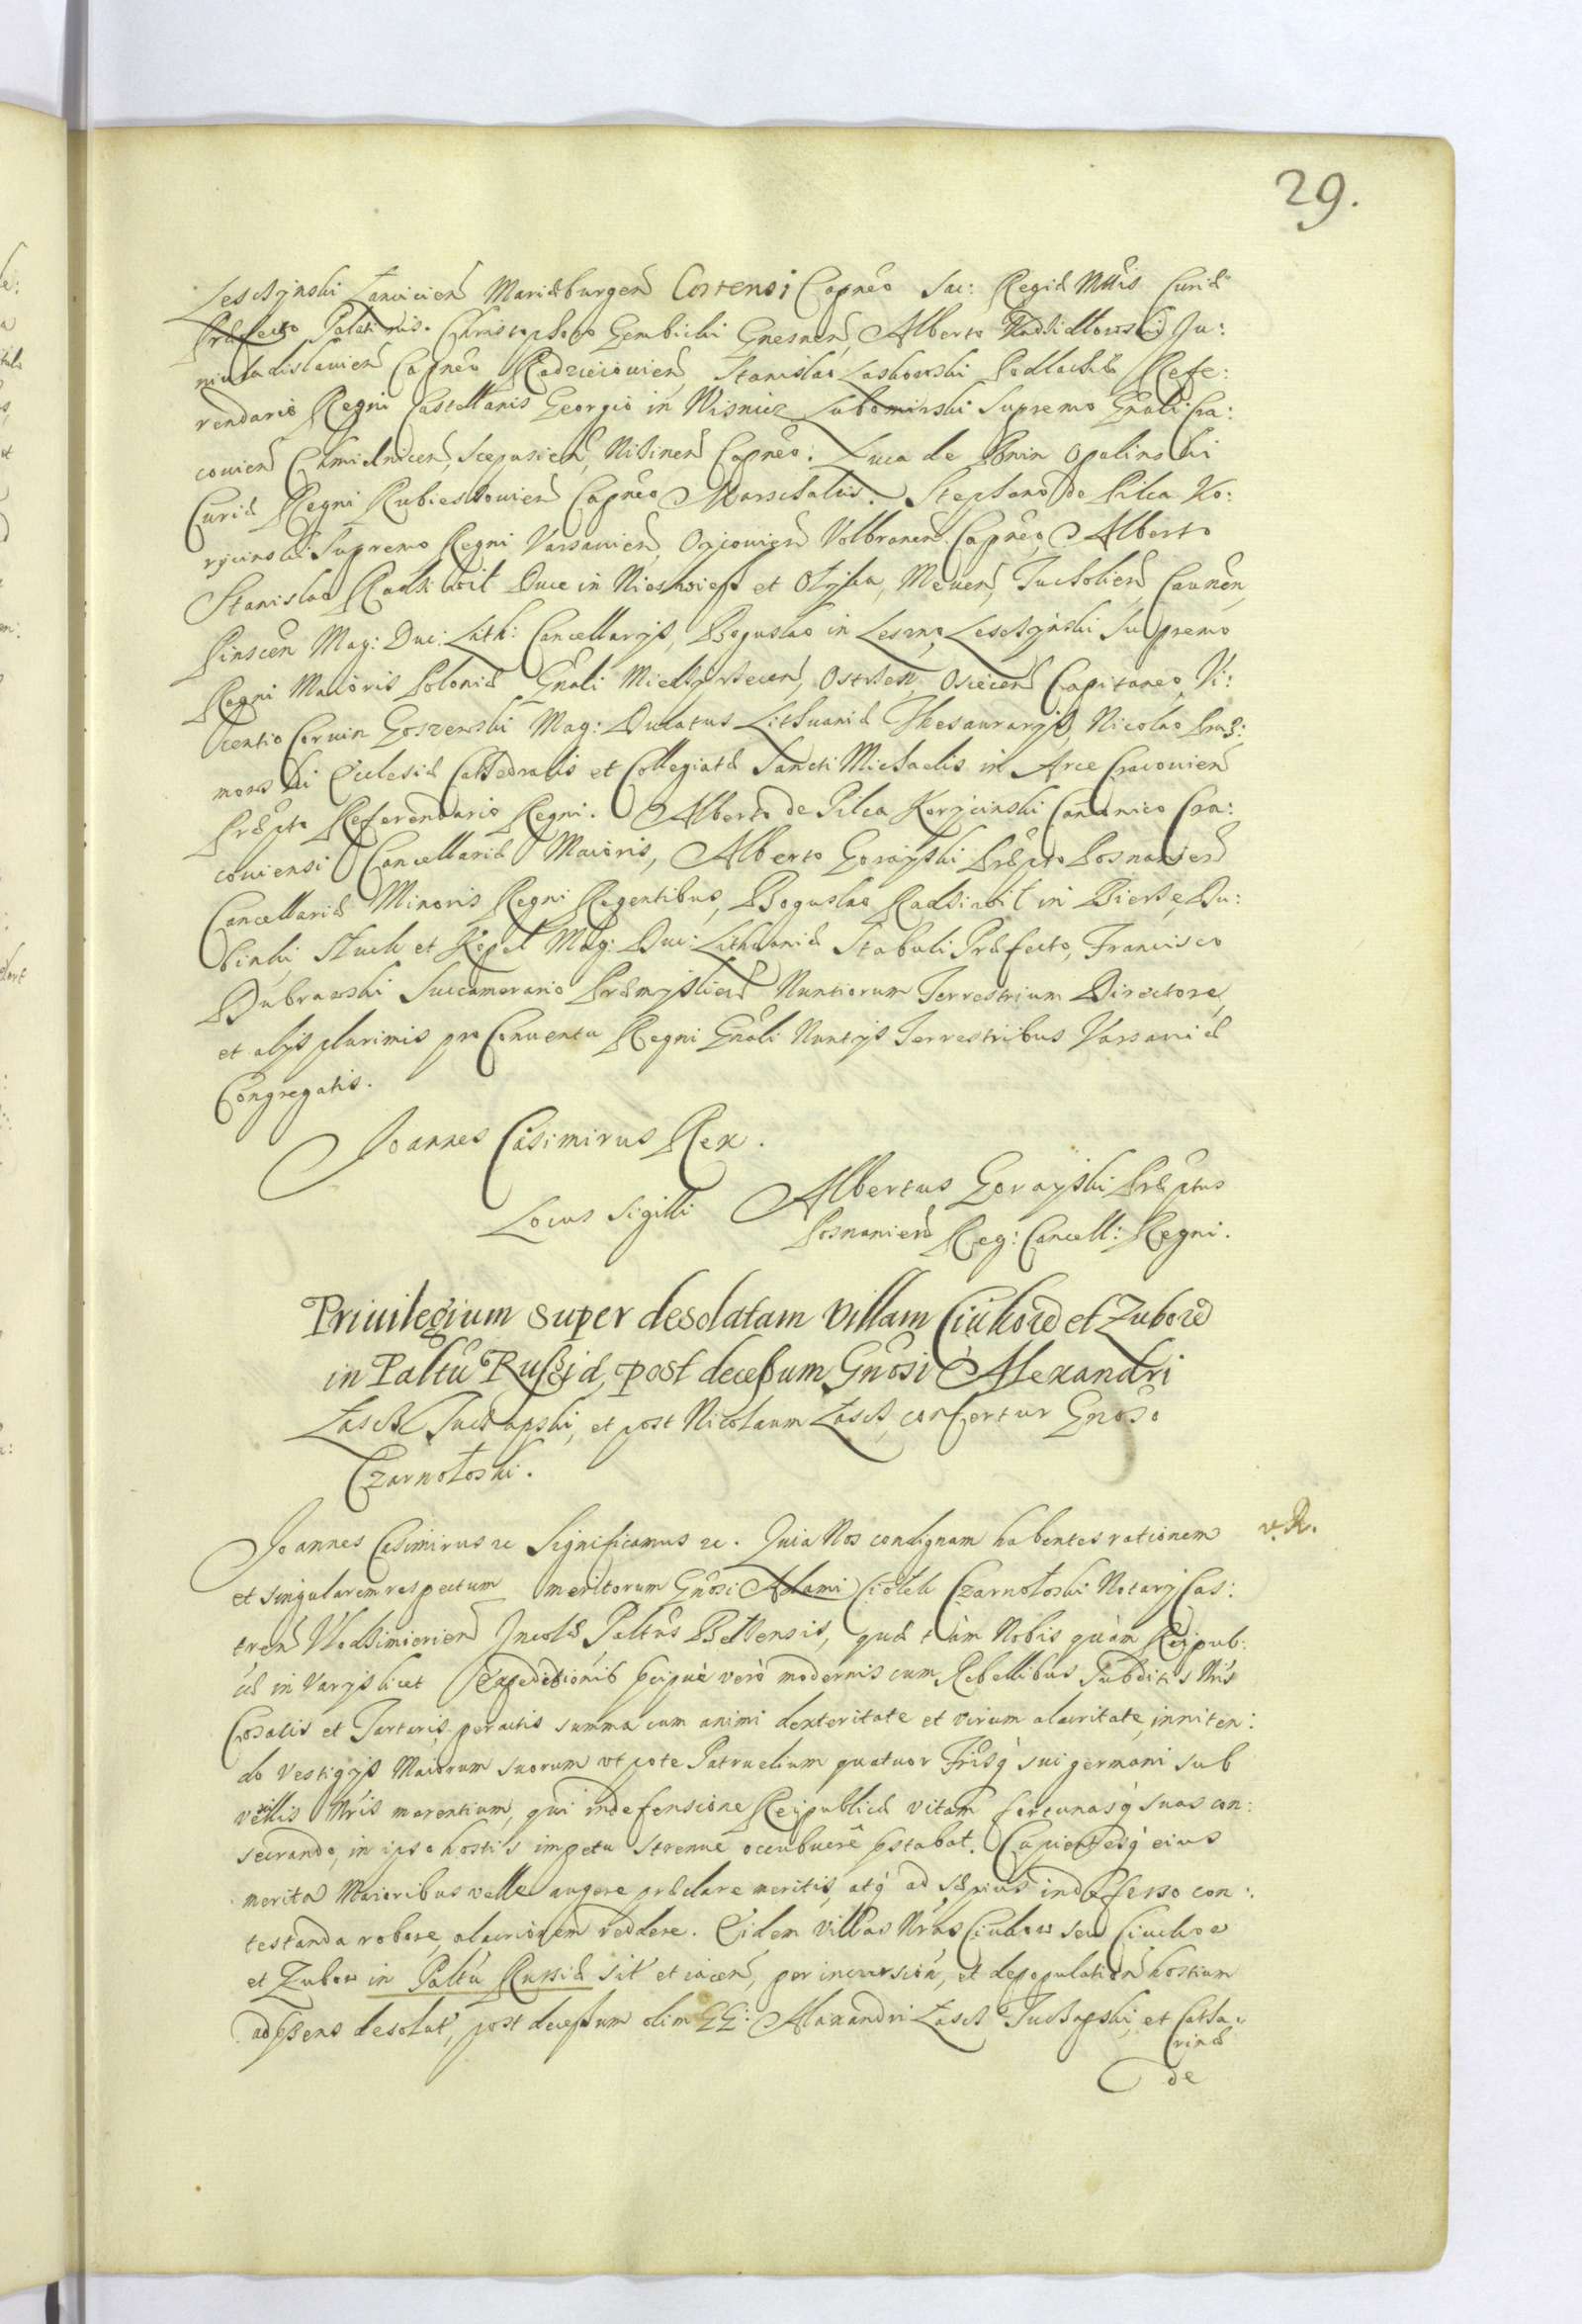 29.
Lesczynski Lanciciens Mariæburgens Costensi Capneo Sac: Regiæ Mttis Curiæ
Præfecto Palatinis. Christophoro Gembicki Gnesnens, Alberto Nadzidlowski Ju:
niuladislauiens Capneo Radzieiouiens, Stanislao Laskowski Podlachiæ Refe:
rendario Regni Castellanis Georgio in Wisnicz Lubomirski Supremo Gnali Cra:
couiens Chmielnicens, Scepusiens, Nizinens Capneo: Luca de Bnin Opalinski
Curiæ Regni Rubieszouiens Capneo Marschalcis. Stephano de Pilca Ko:
rycinski Supremo Regni Varsauiens, Oycouiens Volbramens Capneo, Alberto
Stanislao Radziwil Duce in Nieswiesz et Olyka, Meuens, Tucholiens, Caunen,
Pinscen Mag: Duc: Lith: Cancellarys, Boguslao in Leszno Lesczynski Supremo
Regni Maioris Poloniæ Gnali Miedzyrzecens, Ostrzen, Osiecens Capitaneo, Vi:
centio Corvin Goszewski Mag: Ducatus Lithuaniæ Thesaurarys, Nicolao Praz:
mowski Ecclesiæ Cathedralis et Collegiatæ Sancti Michaelis in Arce Cracouiens
Præpto Referendario Regni. Alberto de Pilca Korycinski Canonico Cra:
couiensi Cancellariæ Maioris, Alberto Gorayski Præpto Posnaniens
Cancellariæ Minoris Regni Regentibus, Boguslao Radziwil in Bierze, Du:
binki, Sluck et Kopel Mag: Duc: Lithuaniæ Stabuli Præfecto, Francisco
Dubrawski Succamerario Præmysliens Nuntiorum Terrestrium Directore,
et alys plurimis pro Conuentu Regni Gnali Nuntys Terrestribus Varsauiæ
Congregatis.
Joannes Casimirus Rex.
Locus Sigilli Albertus Gorayski Præptus
Posnaniens Reg: Cancell: Regni.
Priuilegium super desolatam Villam Ciukow et Zubow
in Paltu Russiæ, post decessum Gnosi Alexandri
Lasch Tuchapski, et post Nicolaum Lasch, confertur Gnoso
Czarnoloski.
Joannes Casimirus etc Significamus etc. Quia Nos condignam habentes rationem
v. R.
et singularem respectum meritorum Gnosi Adami Ciolek Czarnoloski Notary Cas:
trens Vlodzimieriens Incolæ Paltus Belzensis, quæ tam Nobis quàm Reipub:
cæ in Varys licet Expeditionib pcipuè verò modernis cum Rebellibus Subditis Nris
Cosacis et Tartaris peractis summa cum animi dexteritate et virium alacritate, inniten:
do Vestigys Maiorum suorum vt pote Patruelium quatuor Frisq sui germani sub
vexillis Nris merentium, qui in defensione Reipublicæ vitam fortunasq suas con:
secrando, in ipso hostis impetu strenue occubuere pstabat. Cupientesq eius
merita Maioribus velle augere præclare meritis, atq ad sæpius indefesso con:
testanda robore, alacriorem reddere. Eidem Villas Nras Ciukow seu Ciuckow
et Zubow in Paltu Russiæ sit et iacens, per incursion, et depopulation hostium
ad psens desolat, post decessum olim GG: Alexandri Lasch Tuchapski, et Catha:
rinæ
de